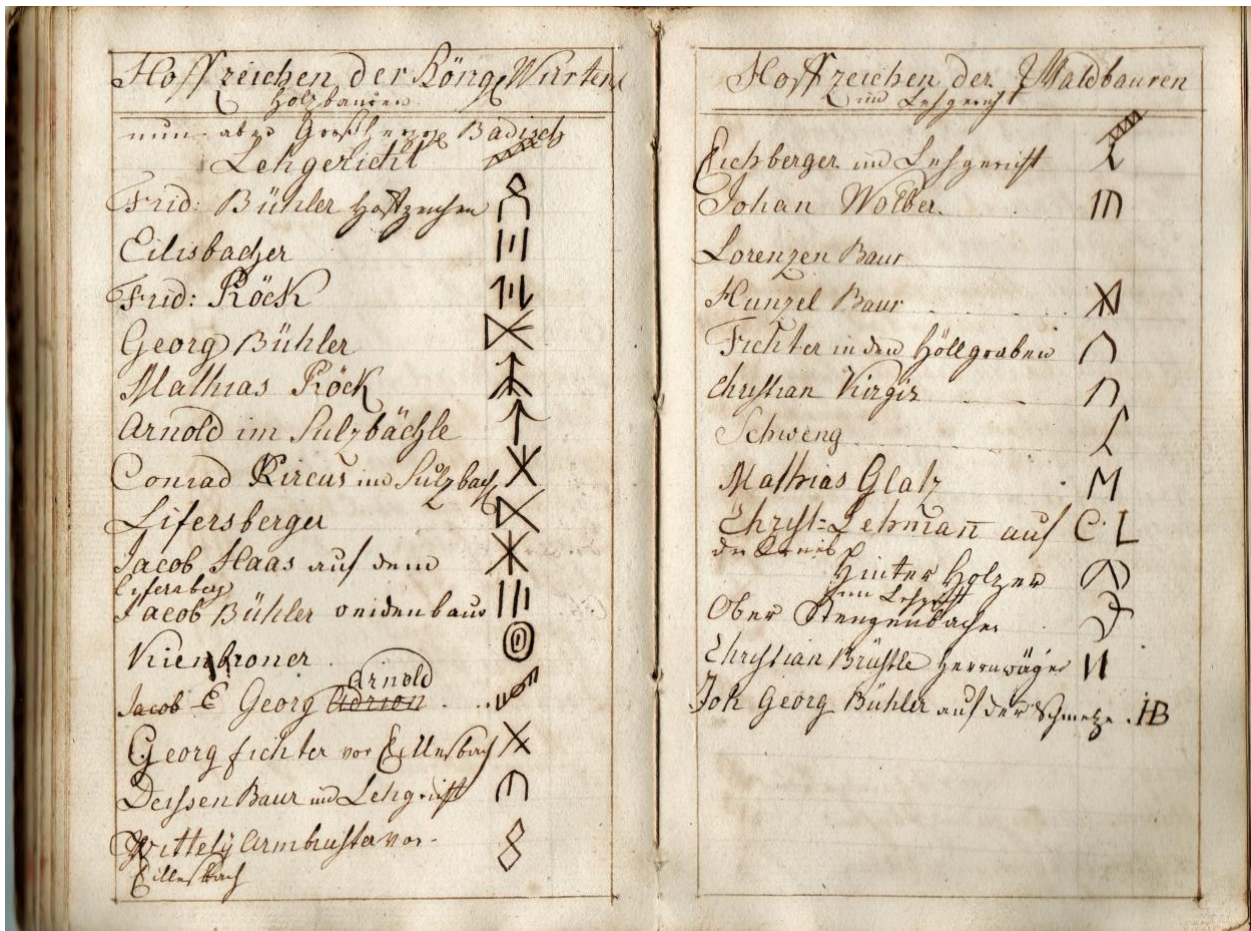 Hoffzeichen der Köngl Würtem
Holzbauren
nun aber Großherzogl Badisch
Lehgericht
Frid: Bühler Hoffzeichen
Eilisbacher
Frid: Röck
Georg Bühler
Mathias Röck
Arnold im Sulzbächle
Conrad Circus im Sulzbach
Lifersberger
Jacob Haas auf dem
Lifersberg
Jacob Bühler
Kienbroner
Arnold
Jacob E Georg Adrion
Georg fichter vor Eillesbach
Deissen Baur und Lehgericht
Armbruster vor
Eillesbach
Hoffzeichen der Waldbauren
und Lehgericht
Eichberger im Lehgericht
Johan Wolber
Lorenzen Baur
Hunzel Baur
Fichter in den Höllgraben
Christian Virgir
Schweng
Mathias Glatz
Christ= Lehmañ auf C L
der
Hinter Holzer
im Lehgericht
Ober Stengenbacher
Christian Brüstle
Joh Georg Bühler auf der Schmelze HB